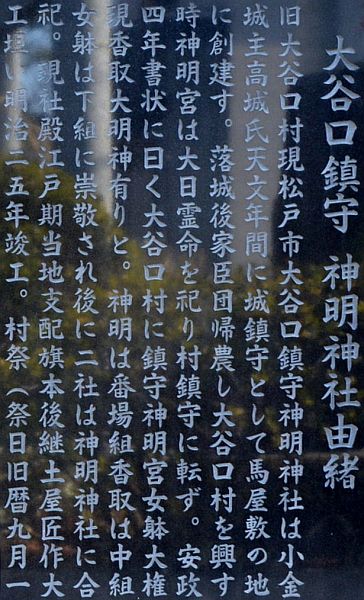 大谷口鎮守 神明神社由緒
旧大谷口村現松戸市大谷口鎮守神明神社は小金
城主高城氏天文年間に城鎮守として馬屋敷の地
に創建す。落城後家臣団帰農し大谷口村を興す
時神明宮は大日霊命を祀り村鎮守に転ず。安政
四年書状に曰く大谷口村に鎮守神明宮女躰大権
現香取大明神有りと。神明は番場組香取は中組
女躰は下組に崇敬され後に二社は神明神社に合
祀。現社殿江戸期当地支配旗本後継土屋匠作大
工垣い明治二五年竣工。村祭（祭日旧暦九月一